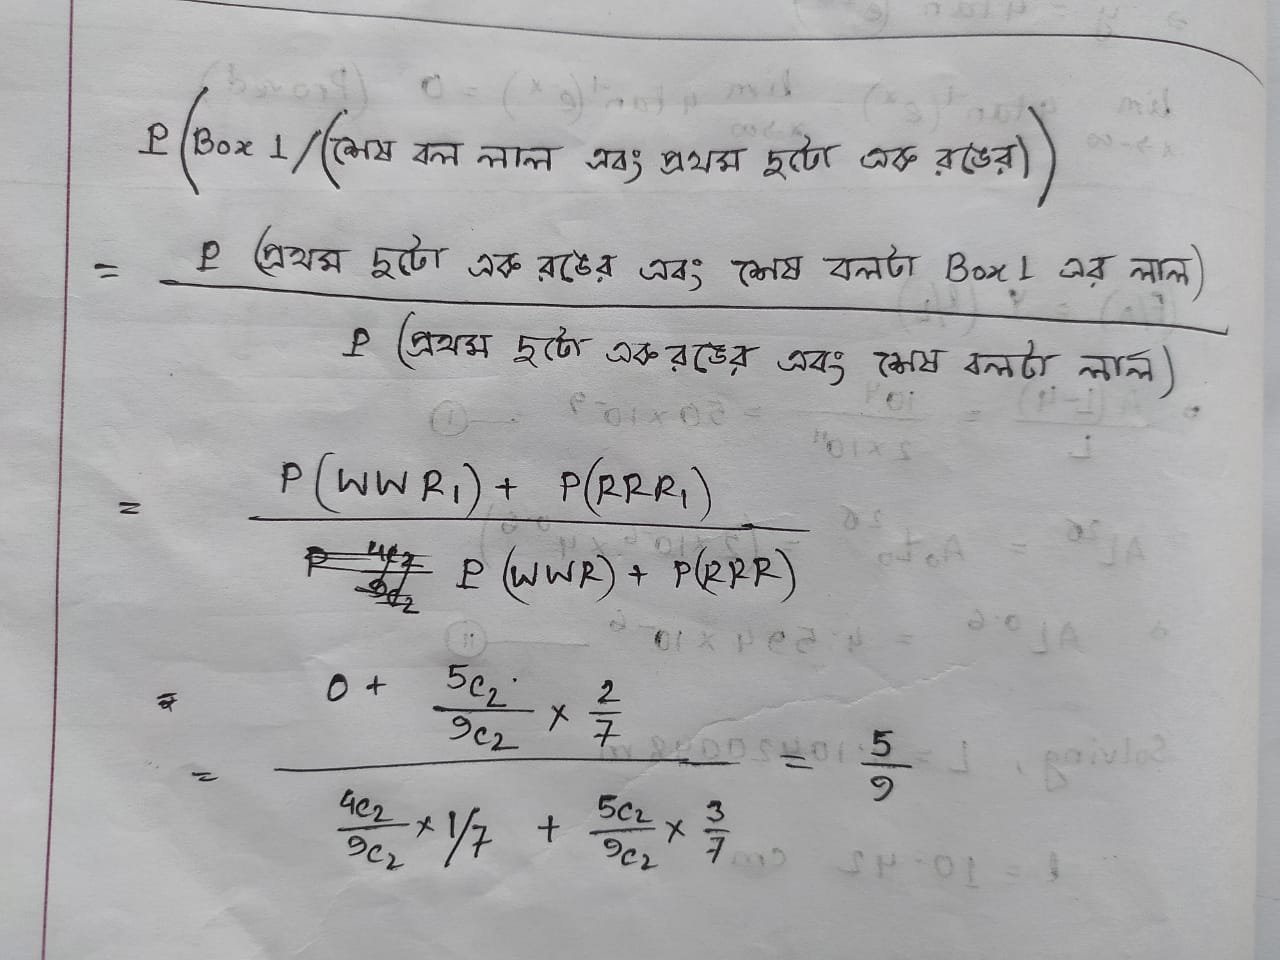 P(Box 1/(শেষ বল লাল এবং প্রথম দুটো এক রঙের))
= P (প্রথম দুটো এক রঙের এবং শেষ বলটা Box 1 এর লাল)
P (প্রথম দুটো এক রঙের এবং শেষ বলটা লাল)
= P(WWR₁) + P(RRR₁)
P(WWR) + P(RRR)
= 0 + 5c₂/9c₂ × 2/7
4c₂/9c₂ × 1/7 + 5c₂/9c₂ × 3/7 = 5/9